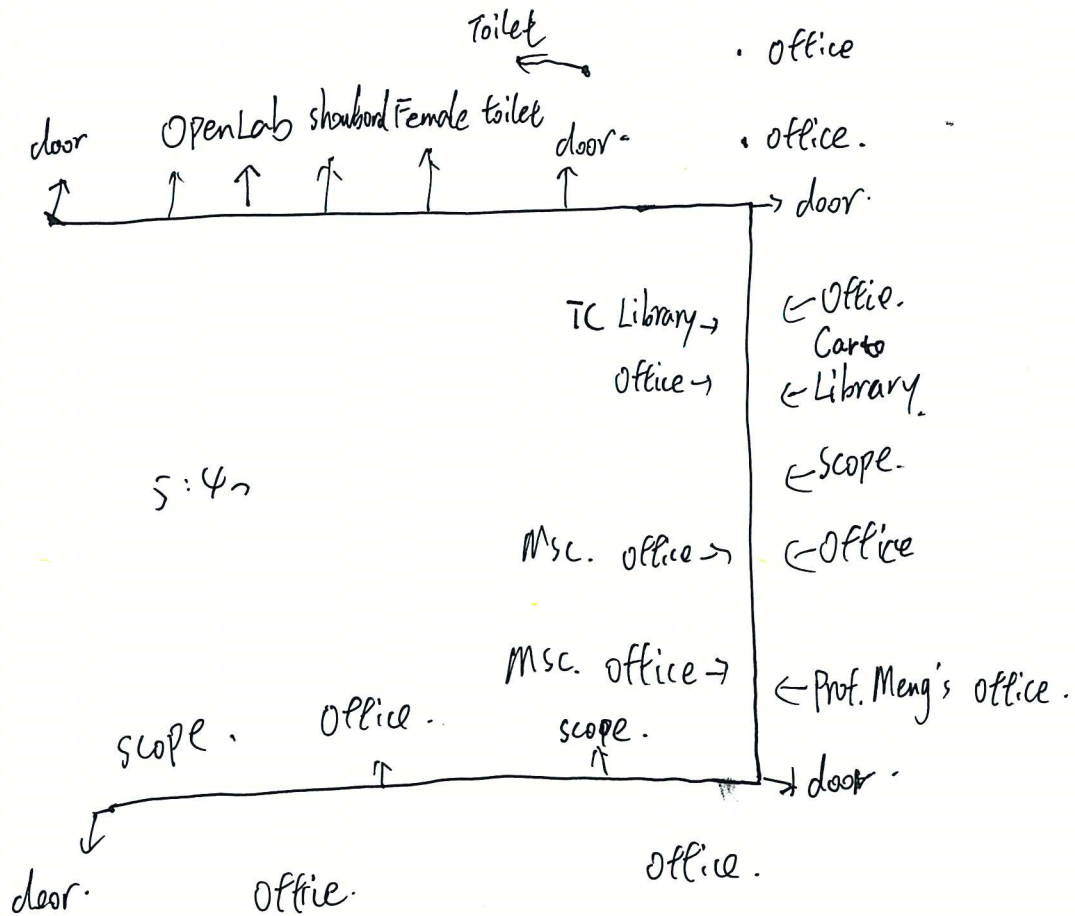 Toilet
. Office
door OpenLab Female toilet door. . Office.
door.
TC Library Offie.
Carto
Office Library.
Scope.
Msc. Office Office
Msc. Office Prof. Meng's Office.
Scope. Office. scope.
door.
door. Offie. Office.